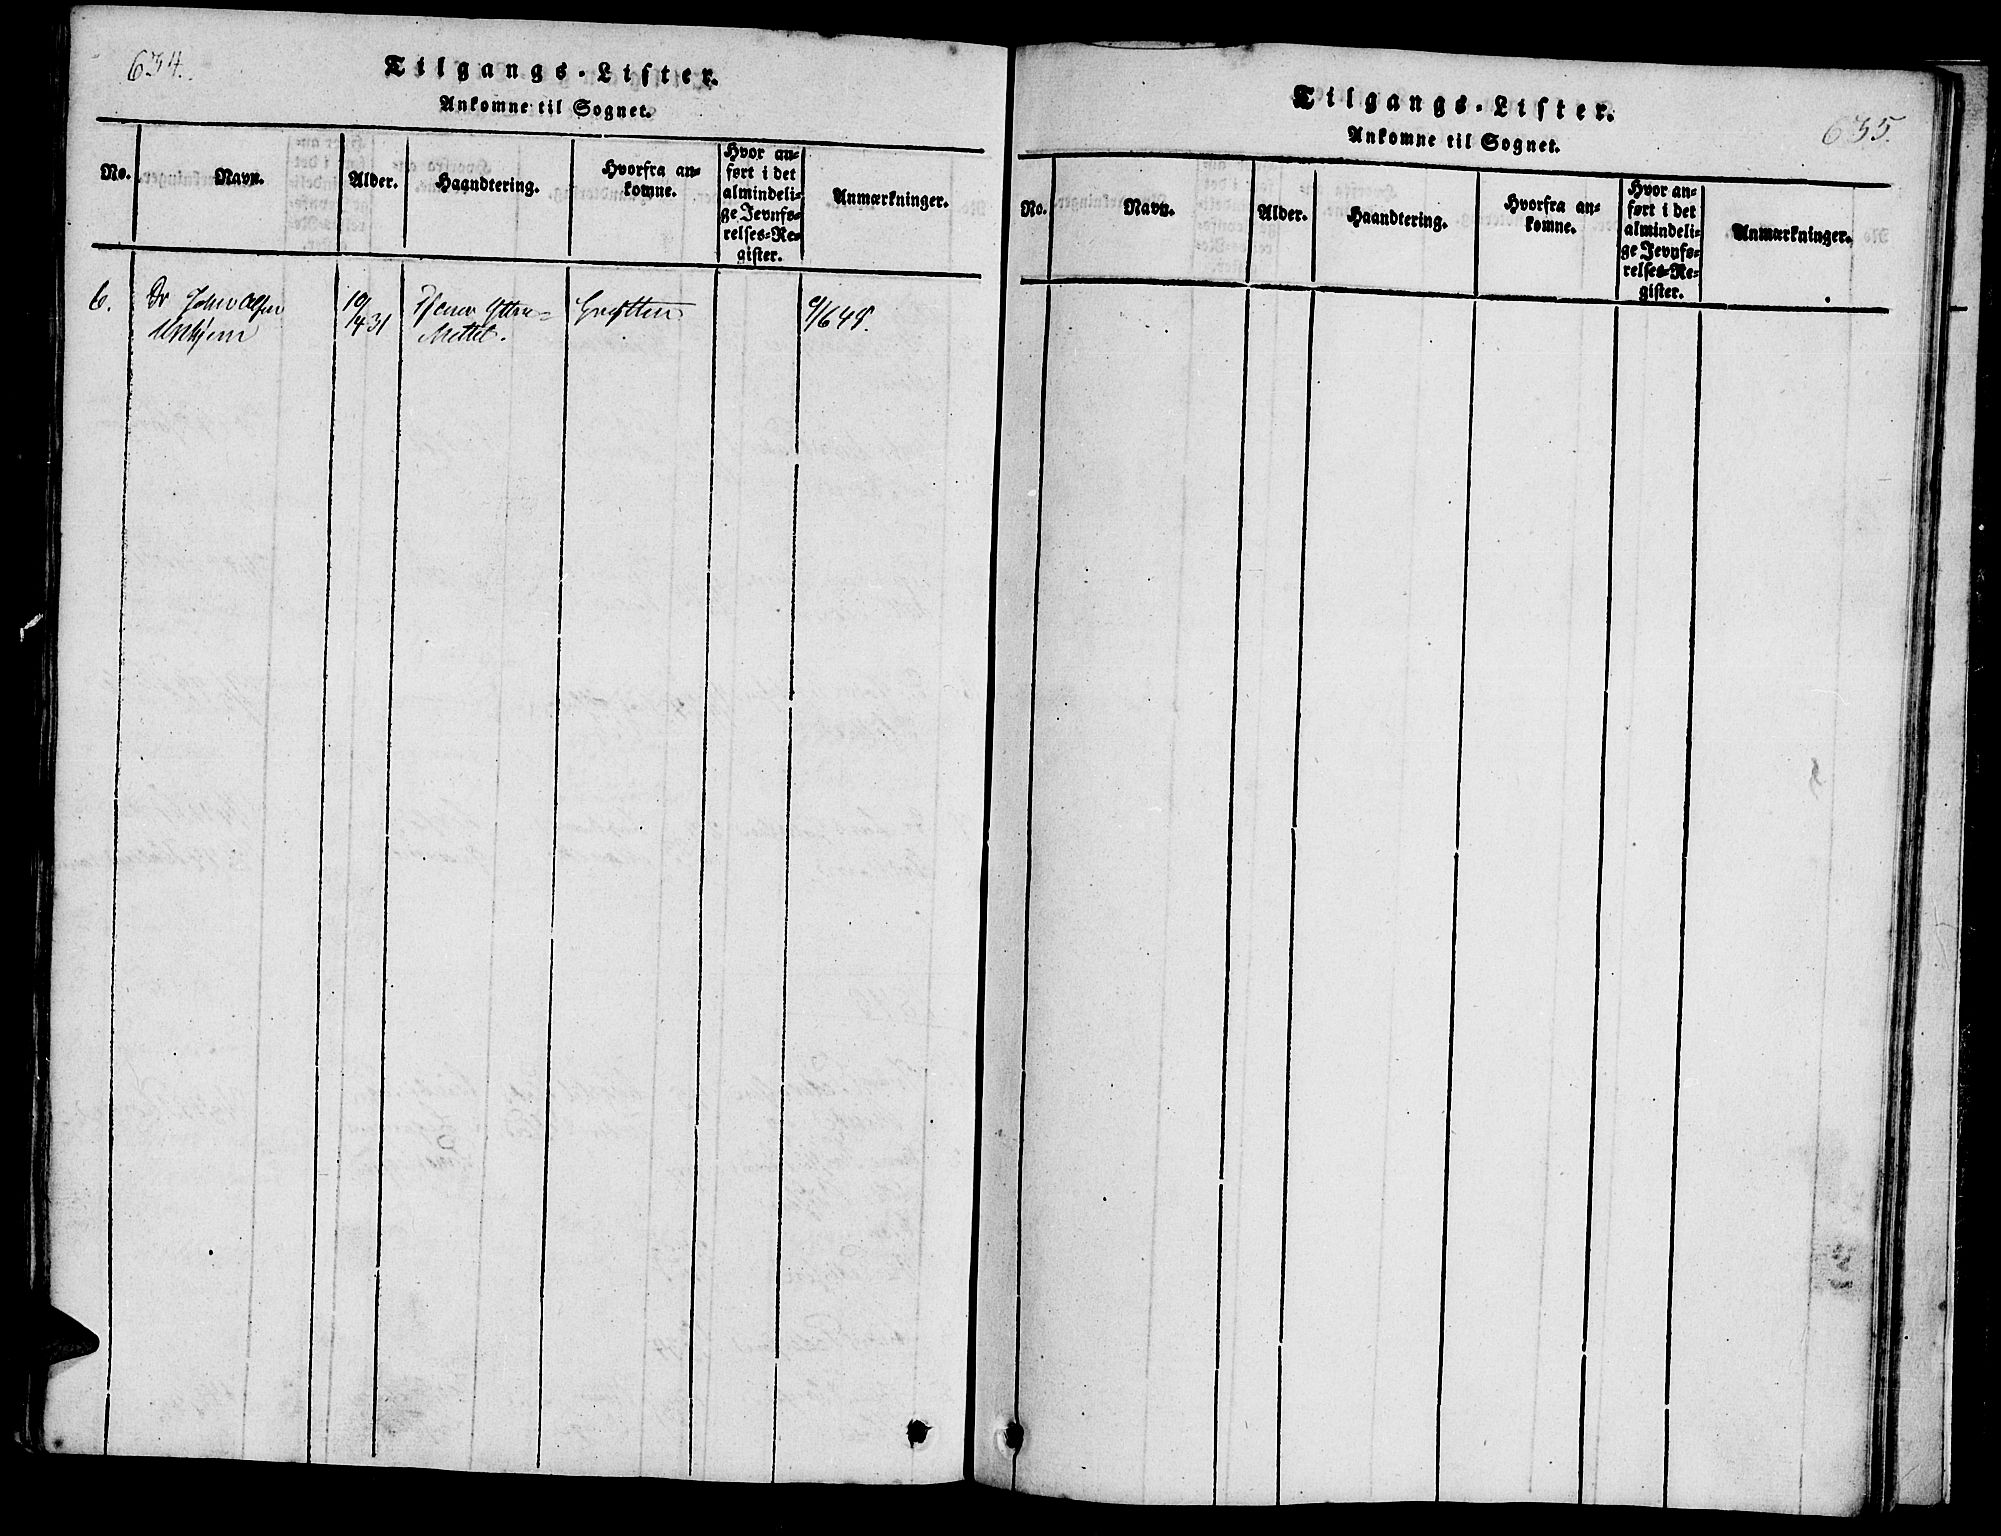 634.
Tilgangs-Lister.
Ankomne til Sognet.
No.
Navn.
Alder.
Haandtering.
Hvorfra an=
komne.
Hvor an=
ført i det
almindeli=
ge Jevnfø=
relses=Re=
gister.
Anmærkninger.
6.
19/
1431
Mettet.
635.
Tilgangs-Lister.
Ankomne til Sognet.
No.
Navn.
Alder.
Haandtering.
Hvorfra an=
komne.
Hvor an=
ført i det
almindeli=
ge Jevnfø=
relses=Re=
gister.
Anmærkninger.